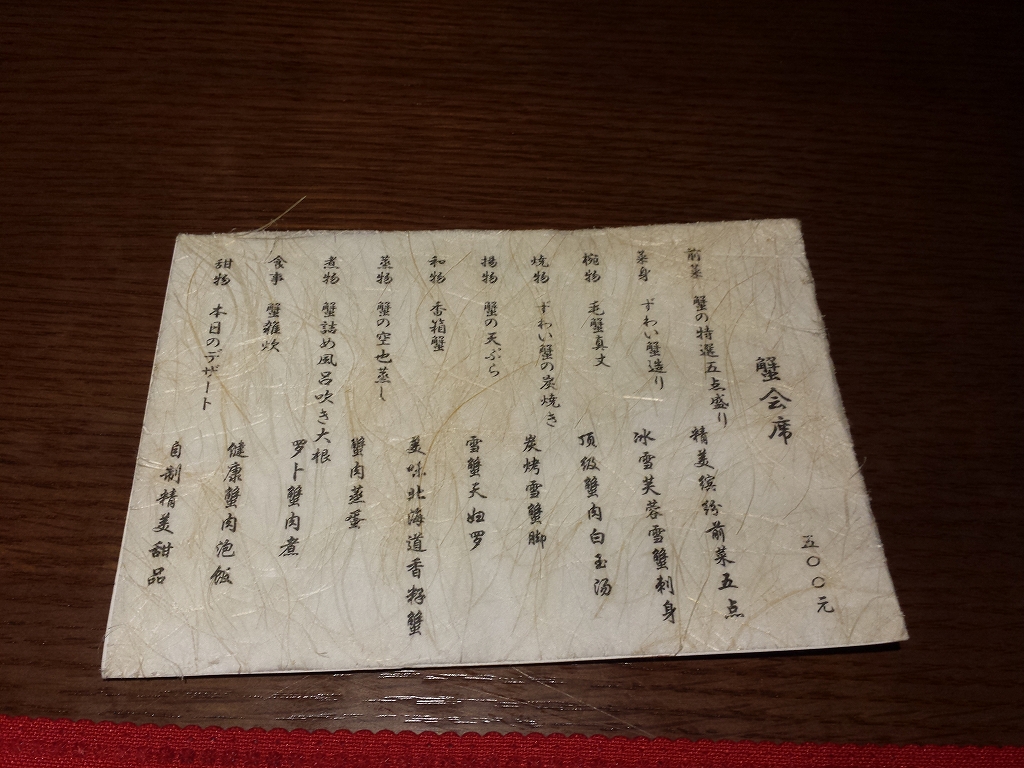 蟹会席
五〇〇元
前菜 蟹の特選五点盛り 精美缤纷前菜五点
菜身 ずわい蟹造り 冰雪芙蓉雪蟹刺身
椀物 毛蟹真丈 顶级蟹肉白玉汤
焼物 ずわい蟹の炭焼き 炭烤雪蟹脚
揚物 蟹の天ぷら 雪蟹天妇罗
和物 香箱蟹 美味北海道香籽蟹
蒸物 蟹の空也蒸し 蟹肉蒸蛋
煮物 蟹詰め風呂吹き大根 罗卜蟹肉煮
食事 蟹雑炊 健康蟹肉泡饭
甜物 本日のデザート 自制精美甜品